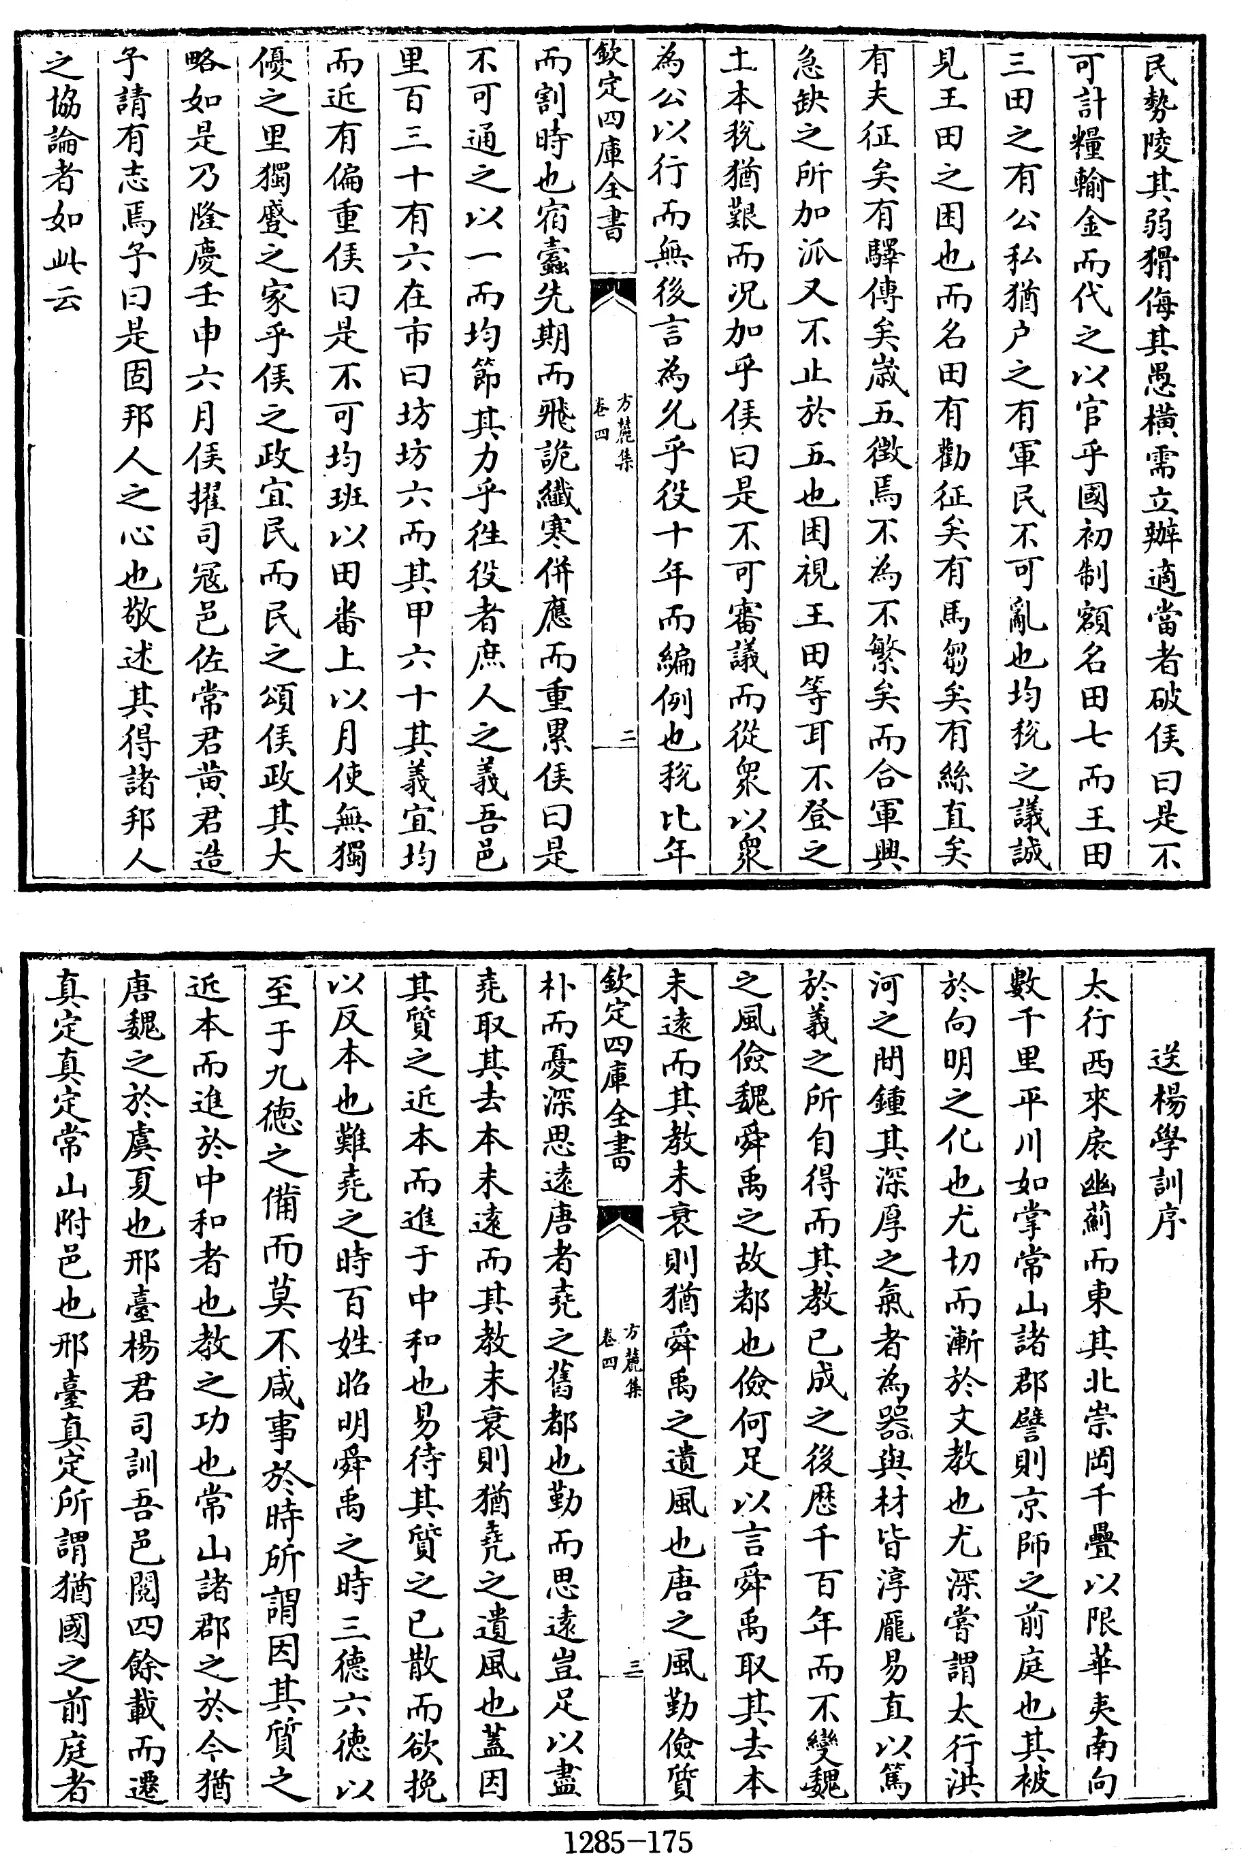 民勢陵其弱猾侮其愚横需立辦適當者破侯曰是不
可計糧輸金而代之以官乎國初制額名田七而王田
三田之有公私猶户之有軍民不可亂也均稅之議誠
見王田之困也而名田有勸征矣有馬芻矣有絲直矣
有夫征矣有驛傳矣歲五徵焉不為不繁矣而合軍興
急缺之所加派又不止於五也困視王田等耳不登之
土本稅猶艱而况加乎侯曰是不可審議而從衆以衆
為公以行而無後言為允乎役十年而編例也稅比年
欽定四庫全書
方麓集
卷四
二
而割時也宿蠧先期而飛詭纎寒併應而重累侯曰是
不可通之以一而均節其力乎徃役者庶人之義吾邑
里百三十有六在市曰坊坊六而其甲六十其義宜均
而近有偏重侯曰是不可均班以田畨上以月使無獨
優之里獨蹙之家乎侯之政宜民而民之頌侯政其大
略如是乃隆慶壬申六月侯擢司冦邑佐常君黄君造
予請有志焉予曰是固邦人之心也敬述其得諸邦人
之協論者如此云
送楊學訓序
太行西來扆幽薊而東其北崇岡千疊以限華夷南向
數千里平川如掌常山諸郡譬則京師之前庭也其被
於向明之化也尤切而漸於文教也尤深嘗謂太行洪
河之間鍾其深厚之氣者為器與材皆淳龐易直以篤
於義之所自得而其教已成之後厯千百年而不變魏
之風儉魏舜禹之故都也儉何足以言舜禹取其去本
未遠而其教未衰則猶舜禹之遺風也唐之風勤儉質
欽定四庫全書
方麓集
卷四
三
朴而憂深思遠唐者堯之舊都也勤而思遠豈足以盡
堯取其去本未遠而其教未衰則猶堯之遺風也蓋因
其質之近本而進于中和也易待其質之已散而欲挽
以反本也難堯之時百姓昭明舜禹之時三德六德以
至于九德之備而莫不咸事於時所謂因其質之
近本而進於中和者也教之功也常山諸郡之於今猶
唐魏之於虞夏也邢臺楊君司訓吾邑閱四餘載而遷
真定真定常山附邑也邢臺真定所謂猶國之前庭者
1285-175